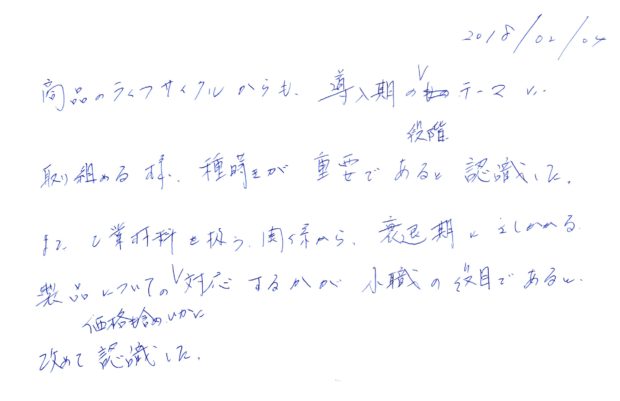 2018/02/04
商品のライフサイクルからも、導入期の段階テーマに
取り組める様、種時きが重要であると認識した。
また工業材料を扱う関係から、衰退期にさしかかる
製品についての価格も含めいかに対応するかが小職の役目であると、
改めて認識した。